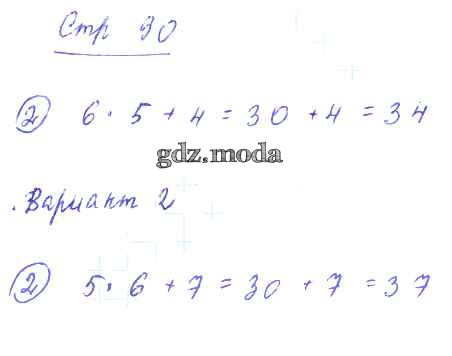 Стр 30
② 6 · 5 + 4 = 30 + 4 = 34
gdz.moda
.Вариант 2
② 5 · 6 + 7 = 30 + 7 = 37